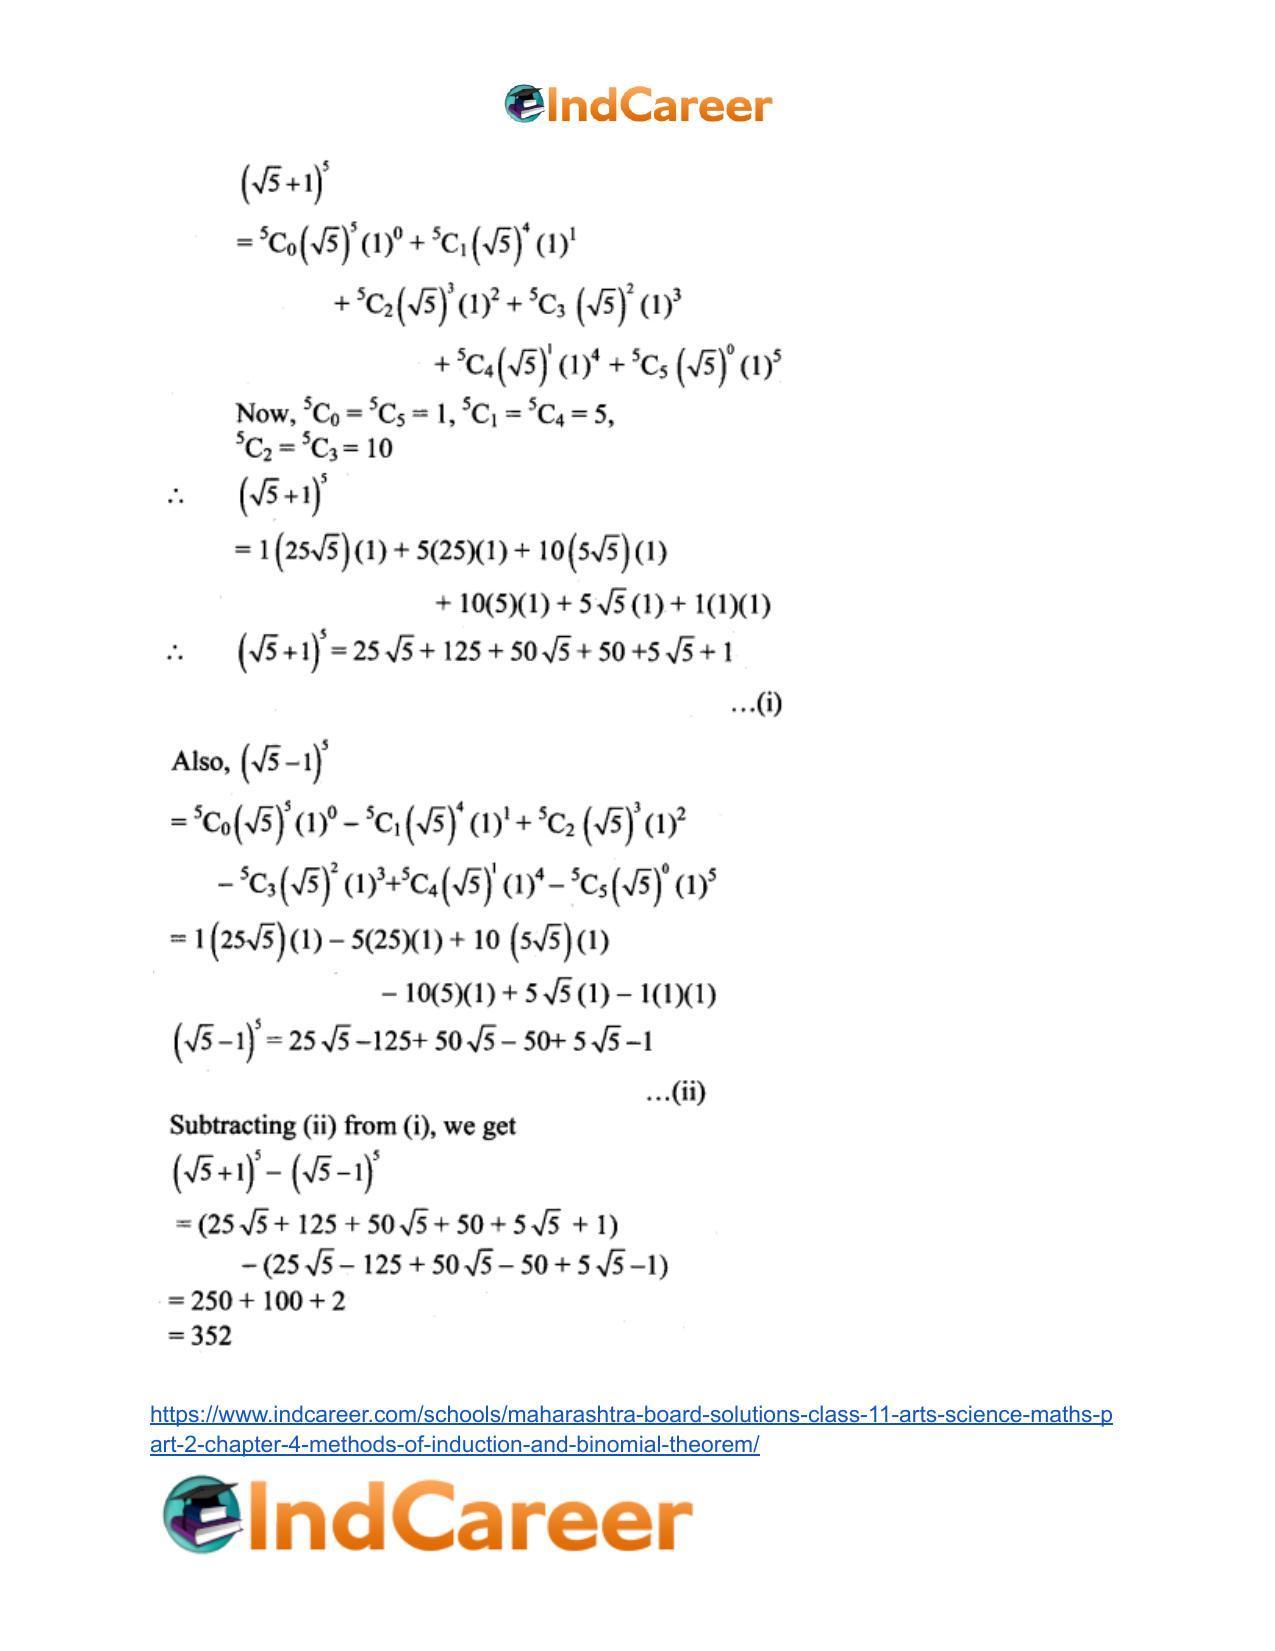 IndCareer
(√5 + 1)⁵
= ⁵C₀(√5)⁵(1)⁰ + ⁵C₁(√5)⁴(1)¹
+ ⁵C₂(√5)³(1)² + ⁵C₃(√5)²(1)³
+ ⁵C₄(√5)¹(1)⁴ + ⁵C₅(√5)⁰(1)⁵
Now, ⁵C₀ = ⁵C₅ = 1, ⁵C₁ = ⁵C₄ = 5,
⁵C₂ = ⁵C₃ = 10
∴ (√5 + 1)⁵
= 1(25√5)(1) + 5(25)(1) + 10(5√5)(1)
+ 10(5)(1) + 5√5(1) + 1(1)(1)
∴ (√5 + 1)⁵ = 25√5 + 125 + 50√5 + 50 +5√5 + 1
...(i)
Also, (√5 – 1)⁵
= ⁵C₀(√5)⁵(1)⁰ – ⁵C₁(√5)⁴(1)¹ + ⁵C₂(√5)³(1)²
– ⁵C₃(√5)²(1)³+⁵C₄(√5)¹(1)⁴ – ⁵C₅(√5)⁰(1)⁵
= 1(25√5)(1) – 5(25)(1) + 10 (5√5)(1)
– 10(5)(1) + 5√5(1) – 1(1)(1)
(√5 – 1)⁵ = 25√5 –125+ 50√5 – 50+ 5√5 –1
...(ii)
Subtracting (ii) from (i), we get
(√5 + 1)⁵ – (√5 – 1)⁵
= (25√5 + 125 + 50√5 + 50 + 5√5 + 1)
– (25√5 – 125 + 50√5 – 50 + 5√5 –1)
= 250 + 100 + 2
= 352
https://www.indcareer.com/schools/maharashtra-board-solutions-class-11-arts-science-maths-p
art-2-chapter-4-methods-of-induction-and-binomial-theorem/
IndCareer